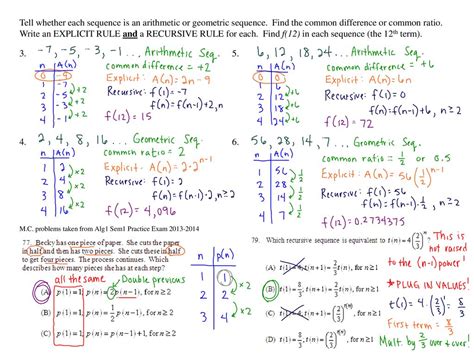 Tell whether each sequence is an arithmetic or geometric sequence. Find the common difference or common ratio.
Write an EXPLICIT RULE and a RECURSIVE RULE for each. Find f(12) in each sequence (the 12th term).
3. -7, -5, -3, -1 ... Arithmetic Seq.
n A(n)
0 -9
1 -7
2 -5
3 -3
4 -1
+2
+2
+2
common difference = +2
Explicit: A(n) = 2n - 9
Recursive: f(1) = -7
f(n) = f(n-1)+2, n
f(12) = 15
5. 6, 12, 18, 24 ... Arithmetic Seq.
n A(n)
0 0
1 6
2 12
3 18
4 24
+6
+6
+6
common difference = +6
Explicit: A(n) = 6n
Recursive: f(1) = 0
f(n) = f(n-1)+6, n ≥ 2
f(12) = 72
4. 2, 4, 8, 16 ... Geometric Seq.
n A(n)
1 2
2 4
3 8
4 16
×2
×2
×2
common ratio = 2
Explicit: A(n) = 2·2ⁿ⁻¹
Recursive: f(1) = 2
f(n) = f(n-1)·2, n ≥ 2
f(12) = 4,096
6. 56, 28, 14, 7 ... Geometric Seq.
n A(n)
1 56
2 28
3 14
4 7
common ratio = 1/2 or 0.5
f(12) = 0.02734375
M.C. problems taken from Alg1 Sem1 Practice Exam 2013-2014
77. Becky has one piece of paper. She cuts the paper
in half and then has two pieces. She cuts these in half
to get four pieces. The process continues. Which
describes how many pieces she has at each step?
all the same
Double previous
(A) p(1) = 1; p(n) = 2p(n-1), for n ≥ 2
(B) p(1) = 1
(C) p(1) = 1; p(n) = p(n-1)+1, for n ≥ 2
n p(n)
1 1
2 2
3 4
×2
×2
79. Which recursive sequence is equivalent to
This is
not raised
to the (n-1) power!
* PLUG IN VALUES!
First term = 8/3
Mult. by 2/3 over + over!